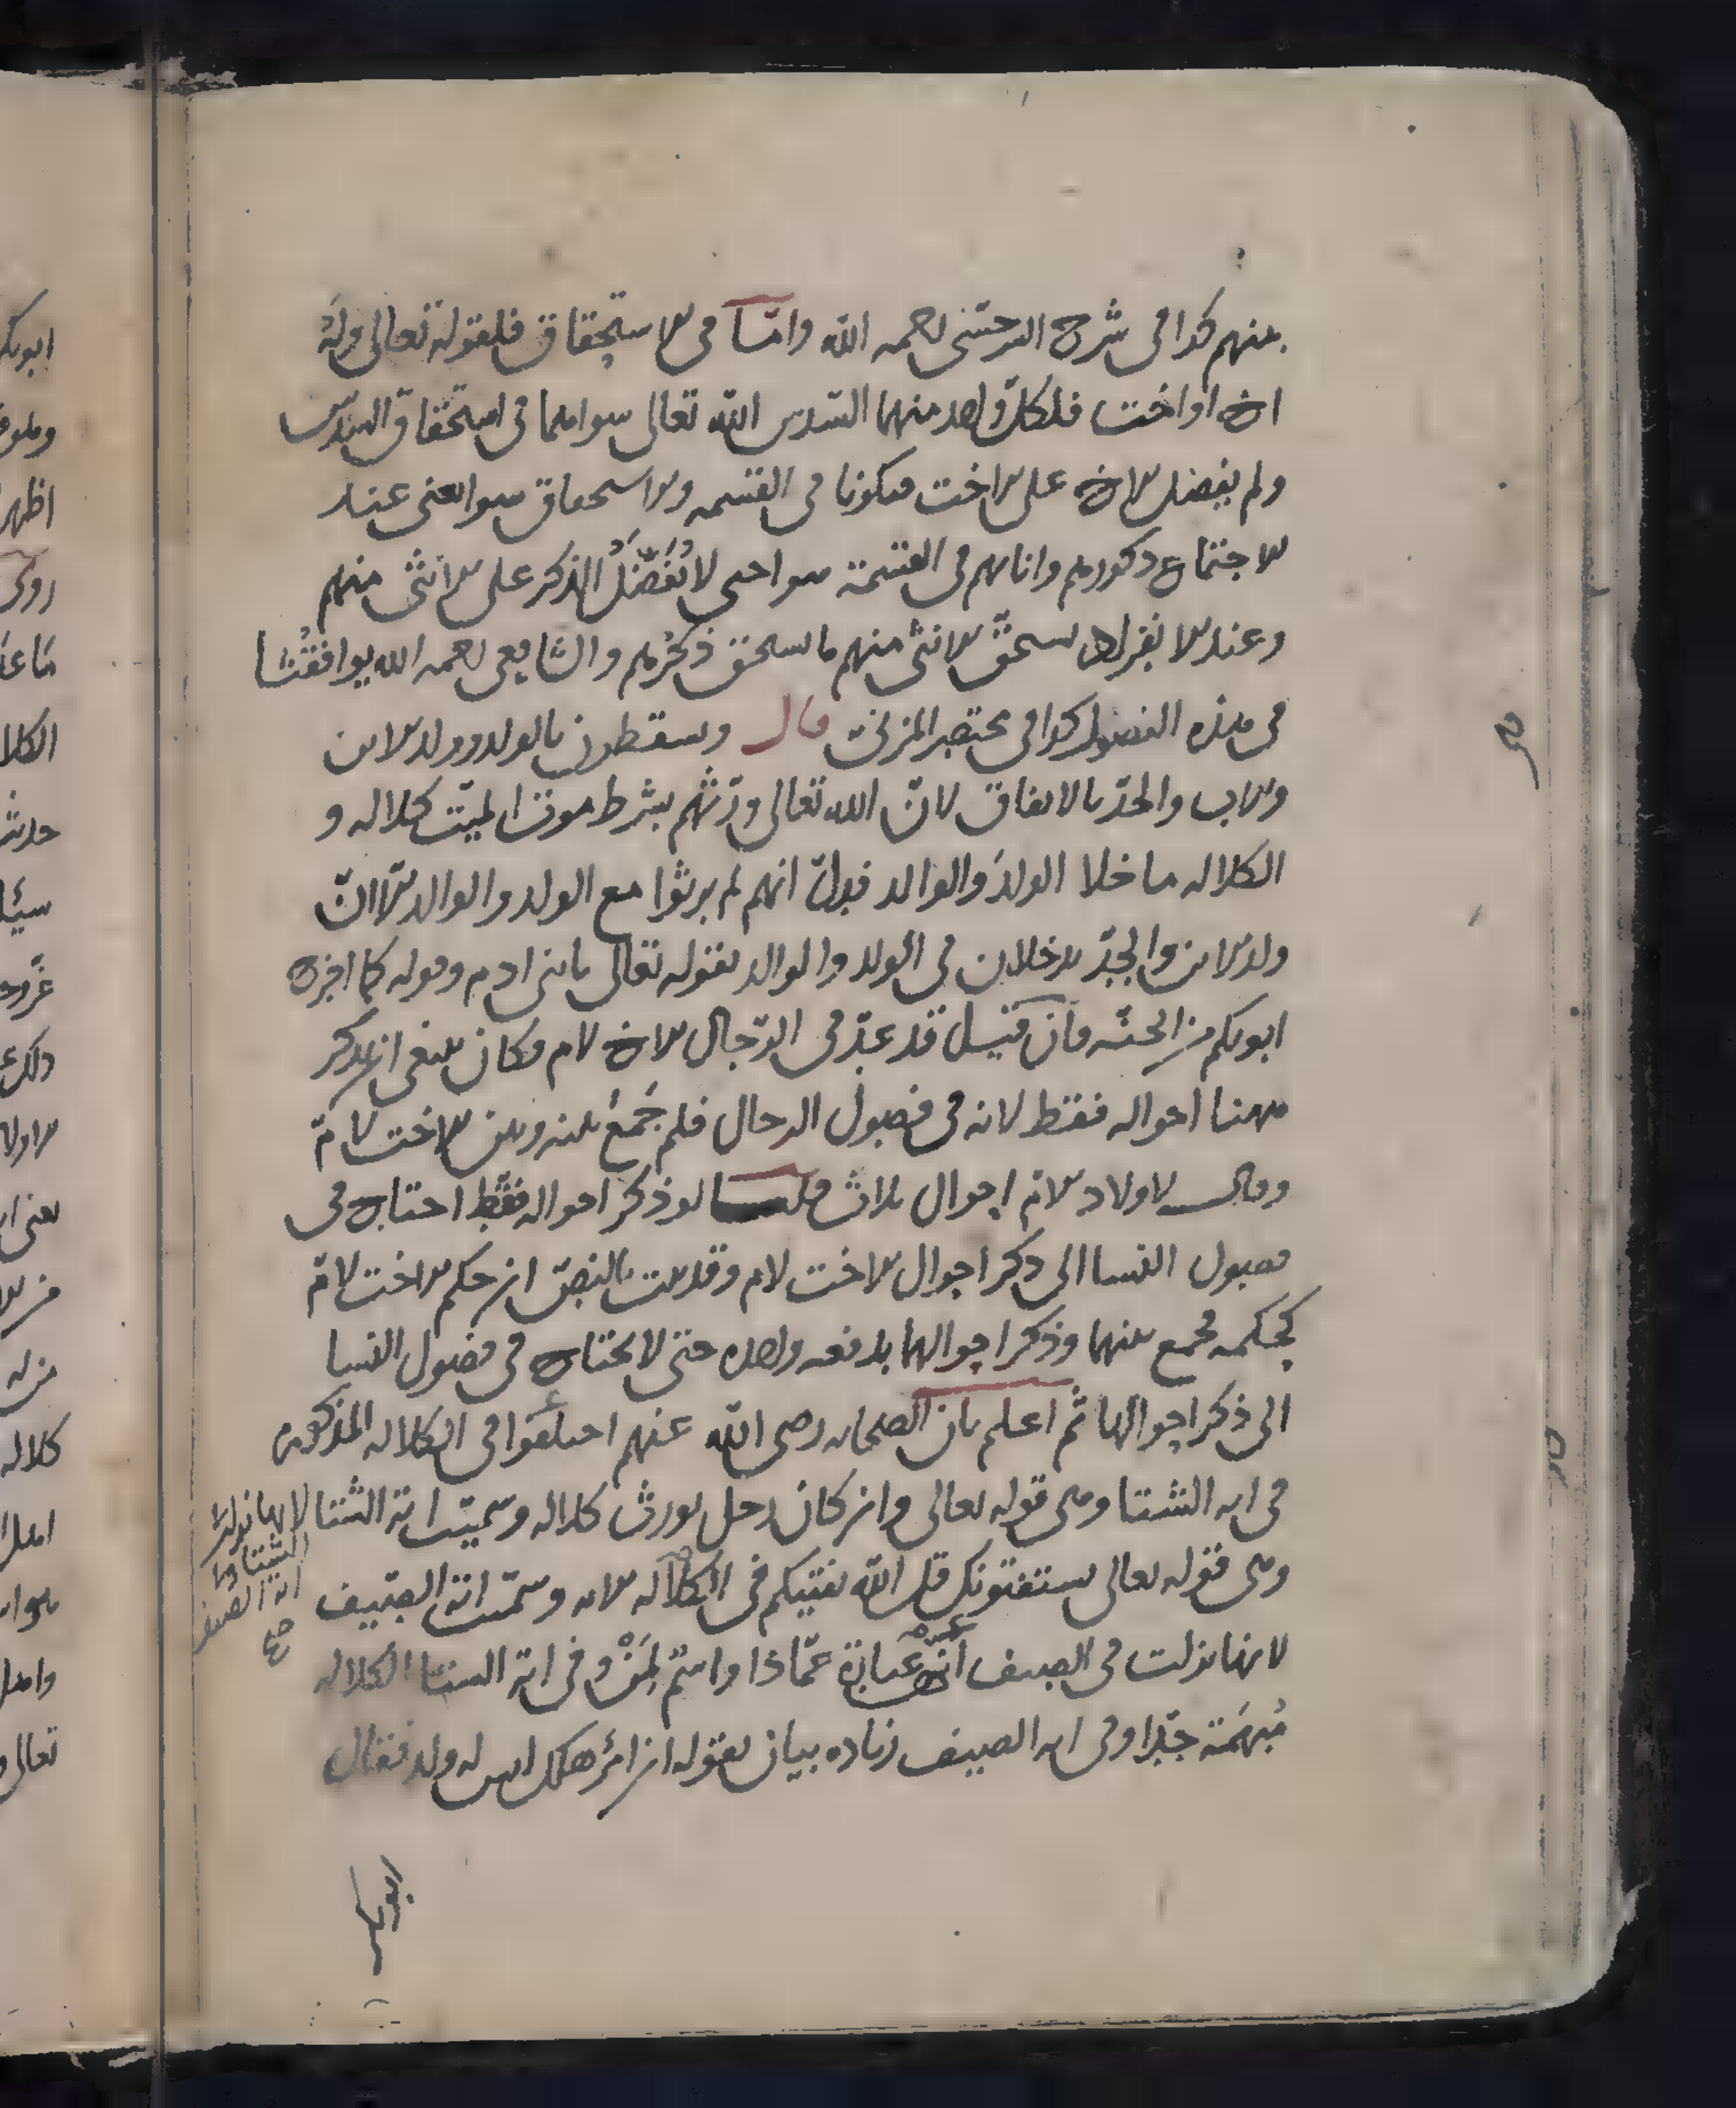 منهم كذا فى شرح السرخسى رحمه الله وامّا فى الاستحقاق فلقوله تعالى وله
اخ او اخت فلكل واحد منهما السّدس الله تعالى سوّاهما فى استحقاق السدس
ولم يفضل الاخ على الاخت فيكونا فى القسمه والاستحقاق سوا يعنى عند
الاجتماع ذكورهم واناثهم فى القسمة سوا حتى لا نُفَضِّلُ الذكر على الانثى منهم
وعند الانفراد يستحقّ الانثى منهم ما يستحق ذكرهم والشافعى رحمه الله يوافقنا
فى هذه الفصول كذا فى مختصر المزنى قال ويسقطون بالولد وولد الابن
والاب والجدّ بالاتفاق لانّ الله تعالى ورّثهم بشرط موت الميّت كلاله و
الكلاله ما خلا الولد والوالد فدلّ انهم لم يرثوا مع الولد والوالد الّا انّ
ولد الابن والجدّ يدخلان فى الولد والوالد بقوله تعالى يا بنى ادم وقوله كما اخرج
ابويكم من الجنّه فان قيل قد عدّ فى الرّجال الاخ لام فكان ينبغى ان يذكر
ههنا احواله فقط لانه فى فصول الرجال فلم جَمَعَ بينه وبين الاخت لامّ
وقال لاولاد الامّ احوال ثلاث قلنا لو ذكر احواله فقط احتاج فى
فصول النسا الى ذكر احوال الاخت لام وقد ثبت بالنصّ ان حكم الاخت لامّ
كحكمه فجمع بينهما وذكر احوالهما بدفعه واحده حتى لا يحتاج فى فصول النسا
الى ذكر احوالها ثم اعلم بان الصحابه رضى الله عنهم اختلفوا فى الكلاله المذكوره
فى ايه الشتا وهى قوله تعالى وان كان رجل يورث كلاله وسميّت اية الشتا لانها نزلت
الشتا واما
اية الصيف
صح
وهى قوله تعالى يستفتونك قل الله يفتيكم فى الكلاله الايه وسمّيت اية الصّيف
لانها نزلت فى الصيف عبارة عمّاذا واسم لِمَنْ وفى اية الشتا الكلاله
مُبهَمَة جدّا وفى ايه الصيف زياده بيان بقوله ان امرؤ هلك ليس له ولد فقال
ابو بكر